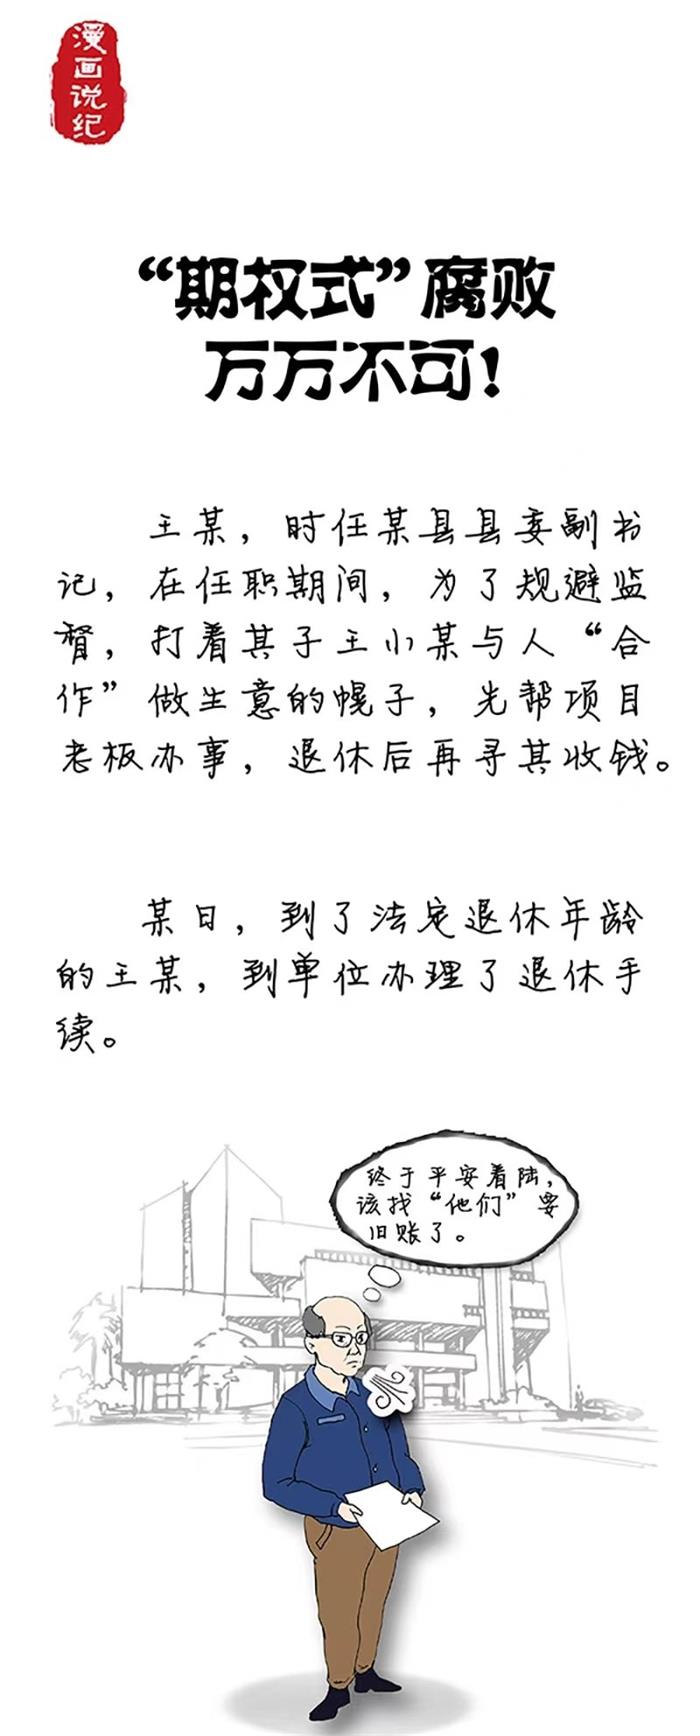 漫画说纪
“期权式”腐败
万万不可！
王某，时任某县县委副书
记，在任职期间，为了规避监
督，打着其子王小某与人“合
作”做生意的幌子，先帮项目
老板办事，退休后再寻其收钱。
某日，到了法定退休年龄
的王某，到单位办理了退休手
续。
终于平安着陆，
该找“他们”要
旧账了。